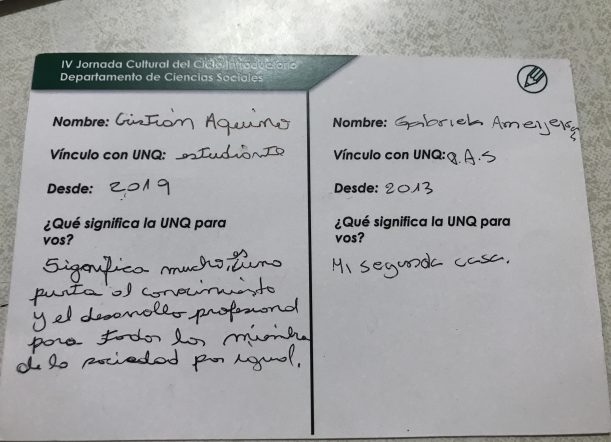 IV Jornada Cultural del Ciclo Introductorio
Departamento de Ciencias Sociales
Nombre: Cristian Aquino
Vínculo con UNQ: estudiante
Desde: 2019
¿Qué significa la UNQ para
vos?
Significa mucho, es una
punta al conocimiento
y el desarrollo profesional
para todos los miembro
de la sociedad por igual.
Nombre: Gabriela Ameijeiras
Vínculo con UNQ: P.A.S
Desde: 2013
¿Qué significa la UNQ para
vos?
Mi segunda casa.